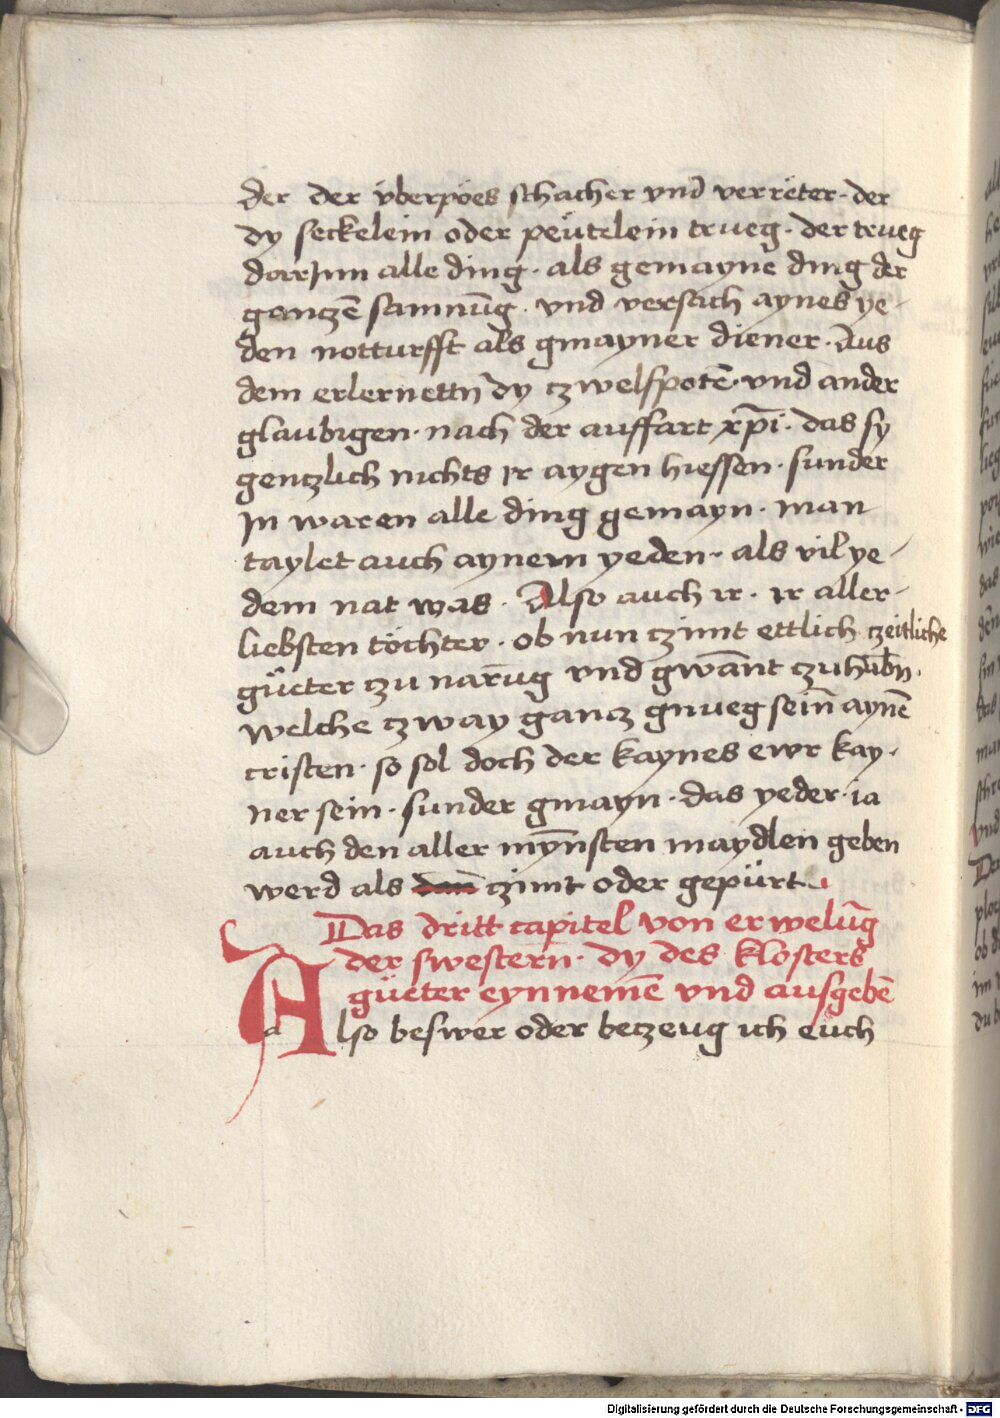 der der v̈berpöes schacher vnd verräter · der
dy seckelein oder peẅtelein trueg · der trueg
darJnn alle ding · als gemayne ding der
gantzē samnūg · vnd versach aynes ye-
den notturfft als gmayner diener · Aus
dem erlernettn dy tzwelfpotē · vnd ander
glaubigen · nach der auffart xp̄i · das sy
gentzlich nichts ir aygen hiessen · sunder
Jn waren alle ding gemayn · man
taylet auch aynem yeden · als vil ye-
dem nat was · Also auch ir · ir aller-
liebsten töchter · ob nun tzimt ettlich tzeitliche
güeter tzu narūg vnd gwānt tzuhabn̄ ·
welche tzway gantz gnueg sein̄ aynē
cristen · so sol doch der kaynes ewr kay-
ner sein · sunder gmayn · das yeder ia
auch den aller myn̄sten maydlen geben
werd als dan̄ tzimt oder gepürt
Das dritt capitel von erwelūg
der swestern̄ · dy des klosters
güeter eynnemē vnd ausgebē
Also beswer oder betzeug ich euch
Digitalisierung gefördert durch die Deutsche Forschungsgemeinschaft - DFG